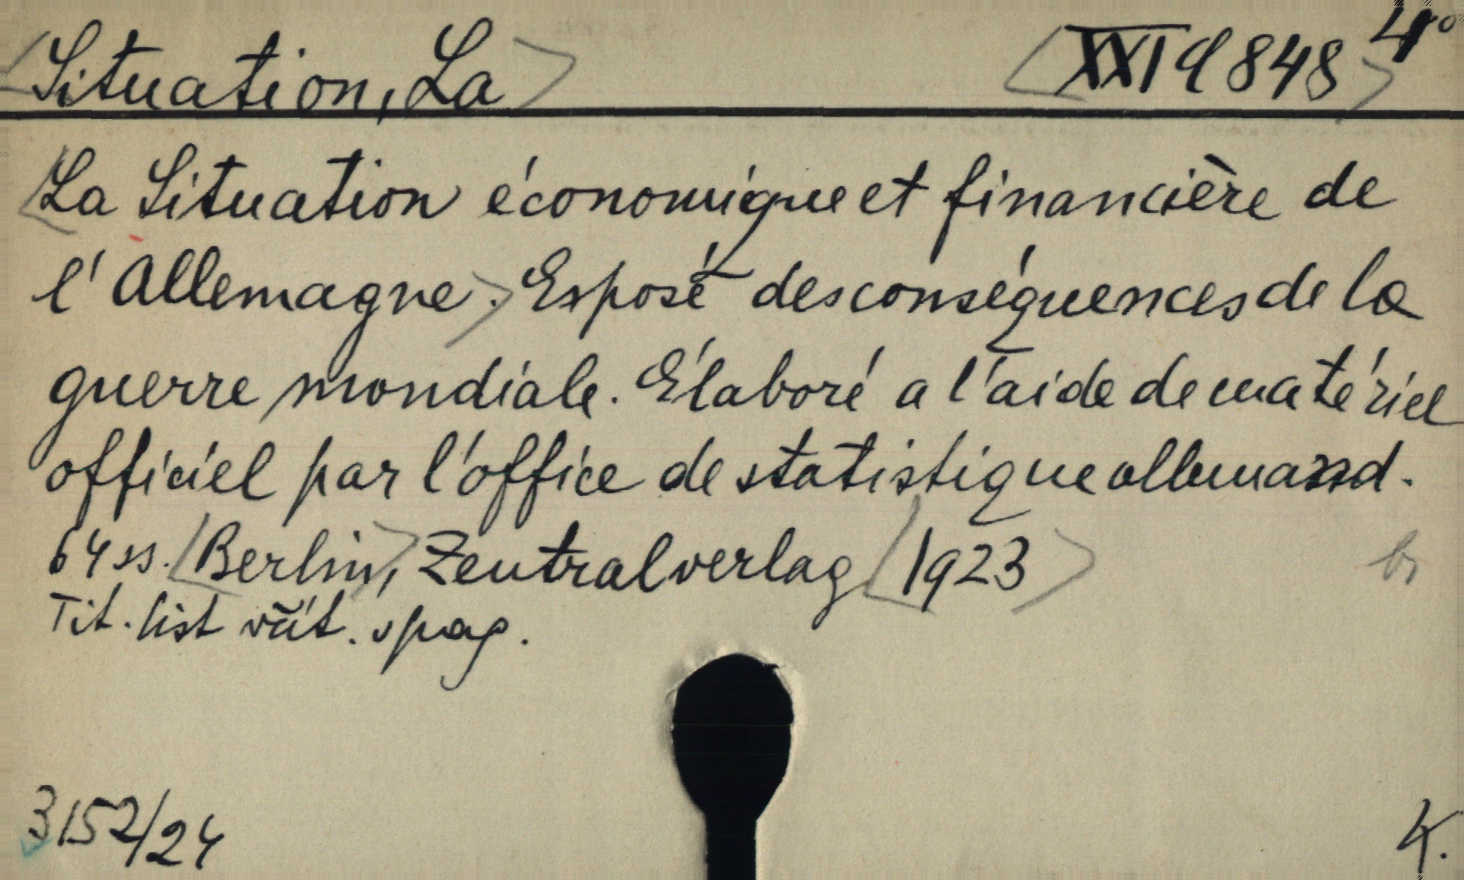 Situation, La
XXI d 848 4°
La Situation économique et financière de
l'Allemagne. Exposé des conséquences de la
guerre mondiale. Élaboré a l'aide de matériel
officiel par l'office de statistique allemand.
64 ss. Berlin, Zentralverlag 1923
Tit. list väit. s pag.
3152/24
K.